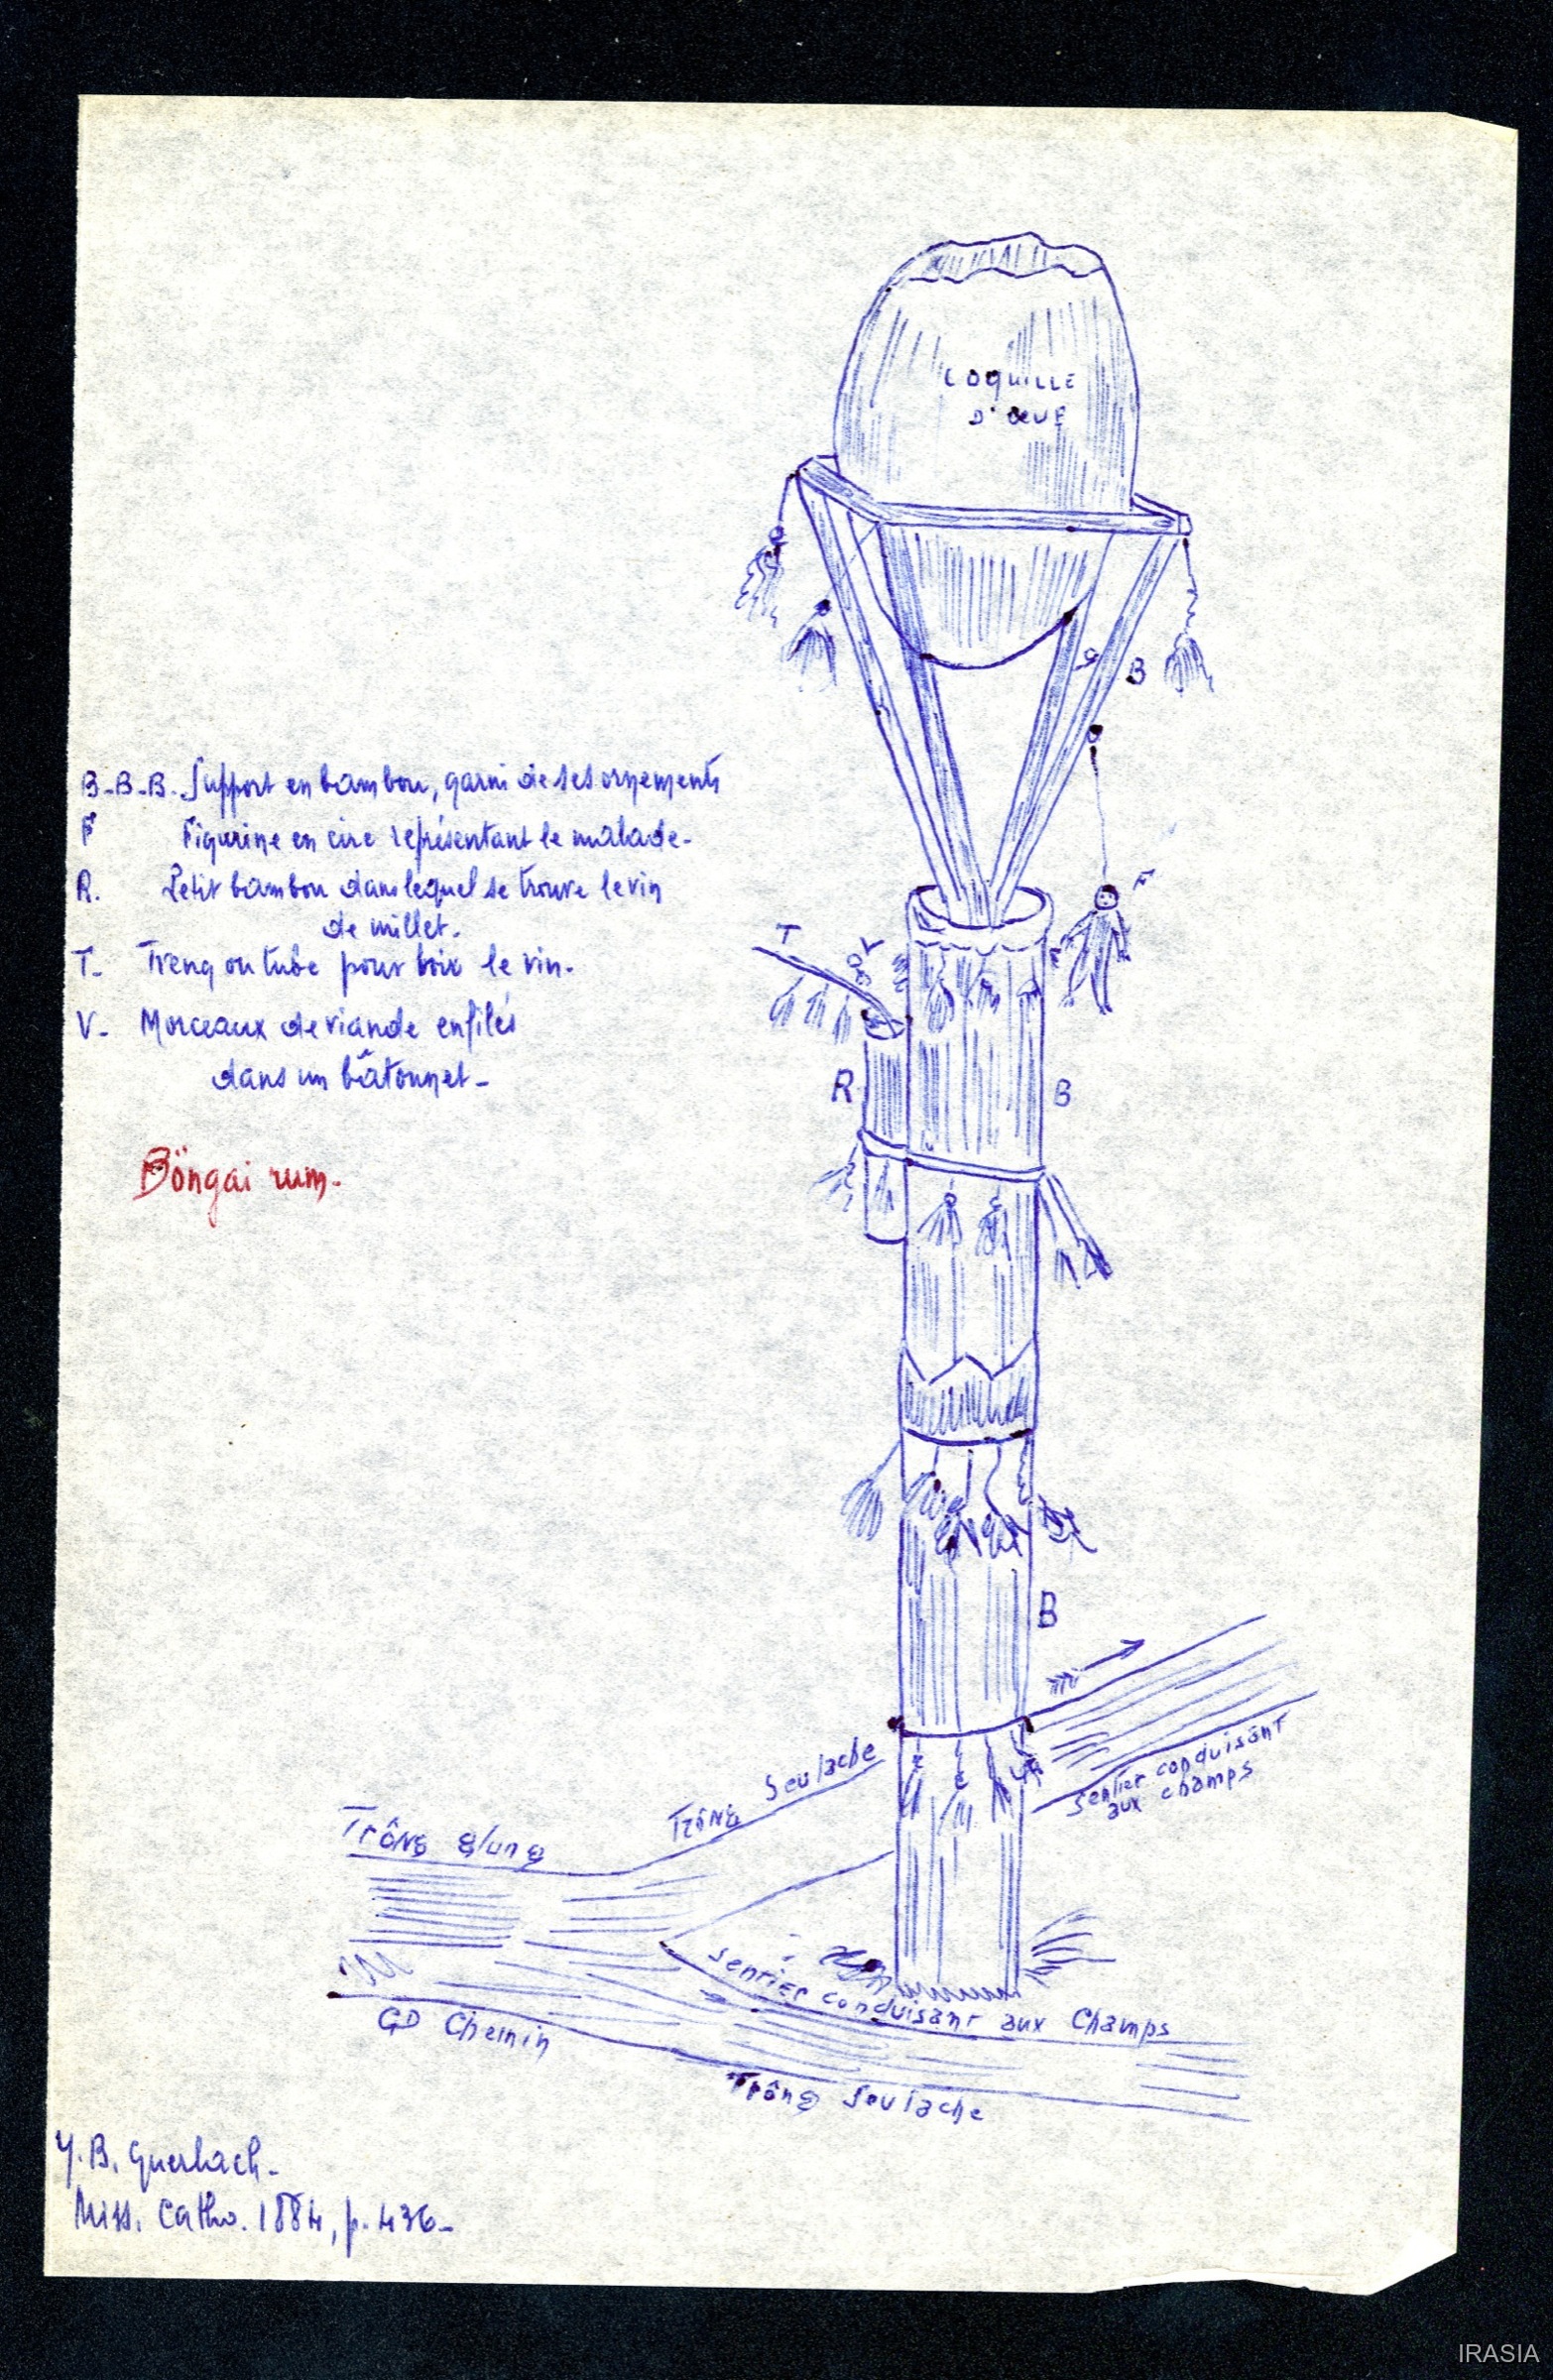 COQUILLE
D'ŒUF
B
B-B-B. Support en bambou, garni de ses ornements
F Figurine en cire représentant le malade-
R. Petit bambou dans lequel se trouve le vin
de millet.
T- Treng ou tube pour boire le vin.
V- Morceaux de viande enfilés
dans un bâtonnet-
F
T
V
R
B
Böngai rum.
B
Trông Seulache
Sentier conduisant
aux champs
Trông glung
Sentier conduisant aux Champs
GD Chemin
Trông Seulache
J.B. Guerlach-
Miss. Catho. 1884, p. 436-
IRASIA